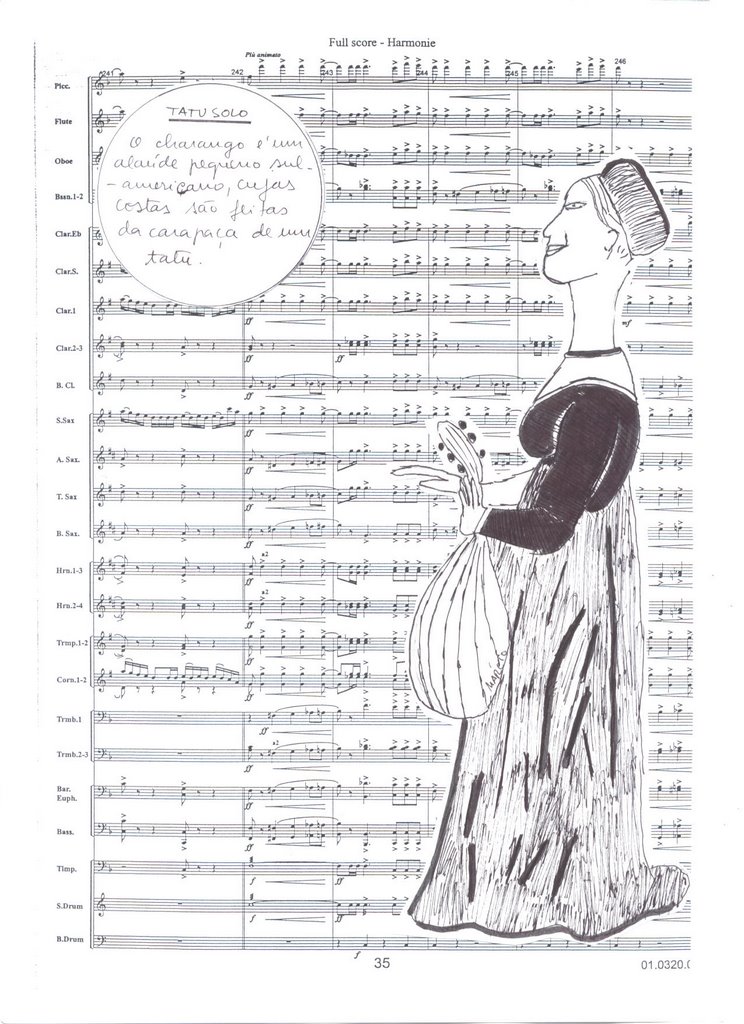 Full score - Harmonie
Più animato
241 242 243 244 245 246
Picc.
Flute
Oboe
Bssn.1-2
Clar.Eb
Clar.S.
Clar.1
Clar.2-3
B. Cl.
S.Sax
A. Sax.
T. Sax
B. Sax.
Hrn.1-3
Hrn.2-4
Trmp.1-2
Corn.1-2
Trmb.1
Trmb.2-3
Bar.
Euph.
Bass.
Timp.
S.Drum
B.Drum
TATU SOLO
O charango é um
alaúde pequeno sul-
-americano, cujas
costas são feitas
da carapaça de um
tatu.
ff
ff
mf
ff
ff
ff
ff
ff
a2
ff
a2
ff
ff
ff
ff
a2
ff
ff
ff
f
ff
f
ff
f
35
01.0320.0